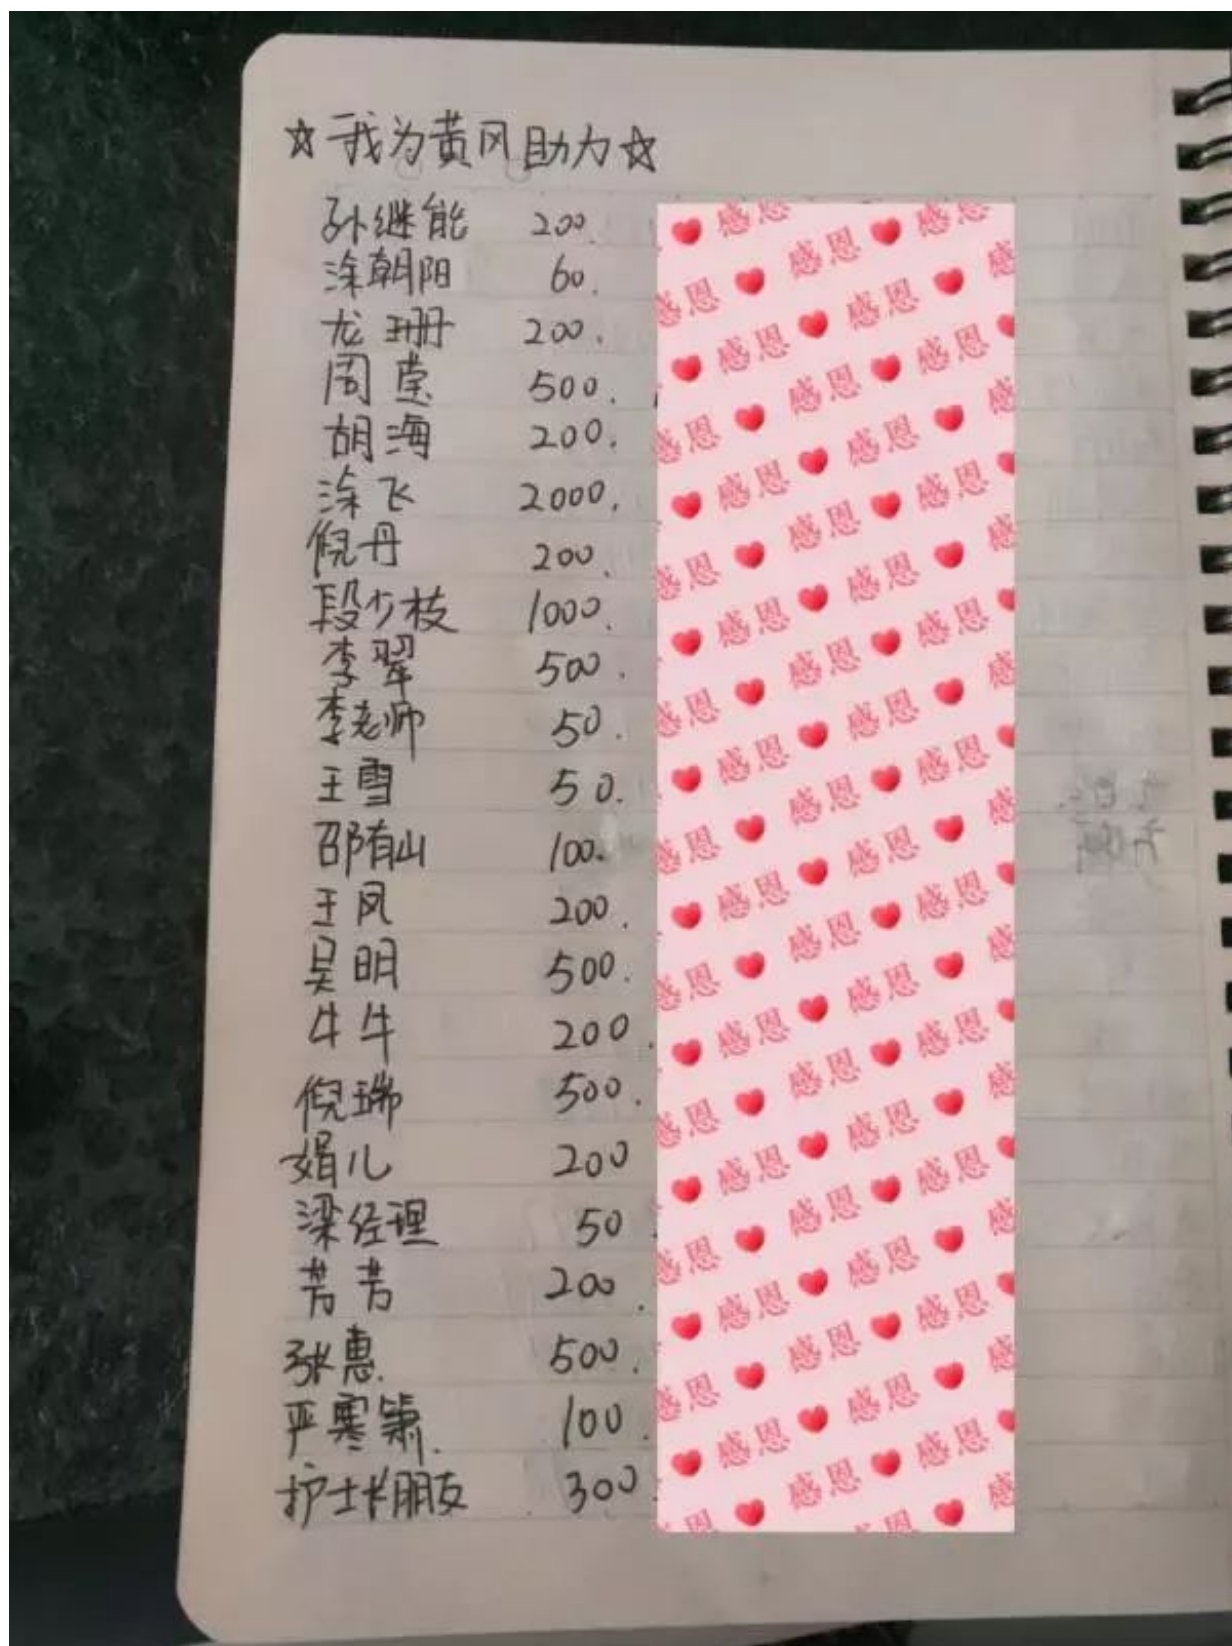 ☆我为黄冈助力☆
孙继能 200.
涂朝阳 60.
龙珊 200.
周莹 500.
胡海 200.
涂飞 2000.
倪丹 200.
段少枝 1000.
李翠 500.
李老师 50.
王雪 50.
邵有山 100.
王凤 200.
吴明 500.
牛牛 200.
倪瑞 500.
娟儿 200
梁经理 50
芳芳 200.
张惠. 500.
严寒箫. 100.
护士长朋友 300.
感恩